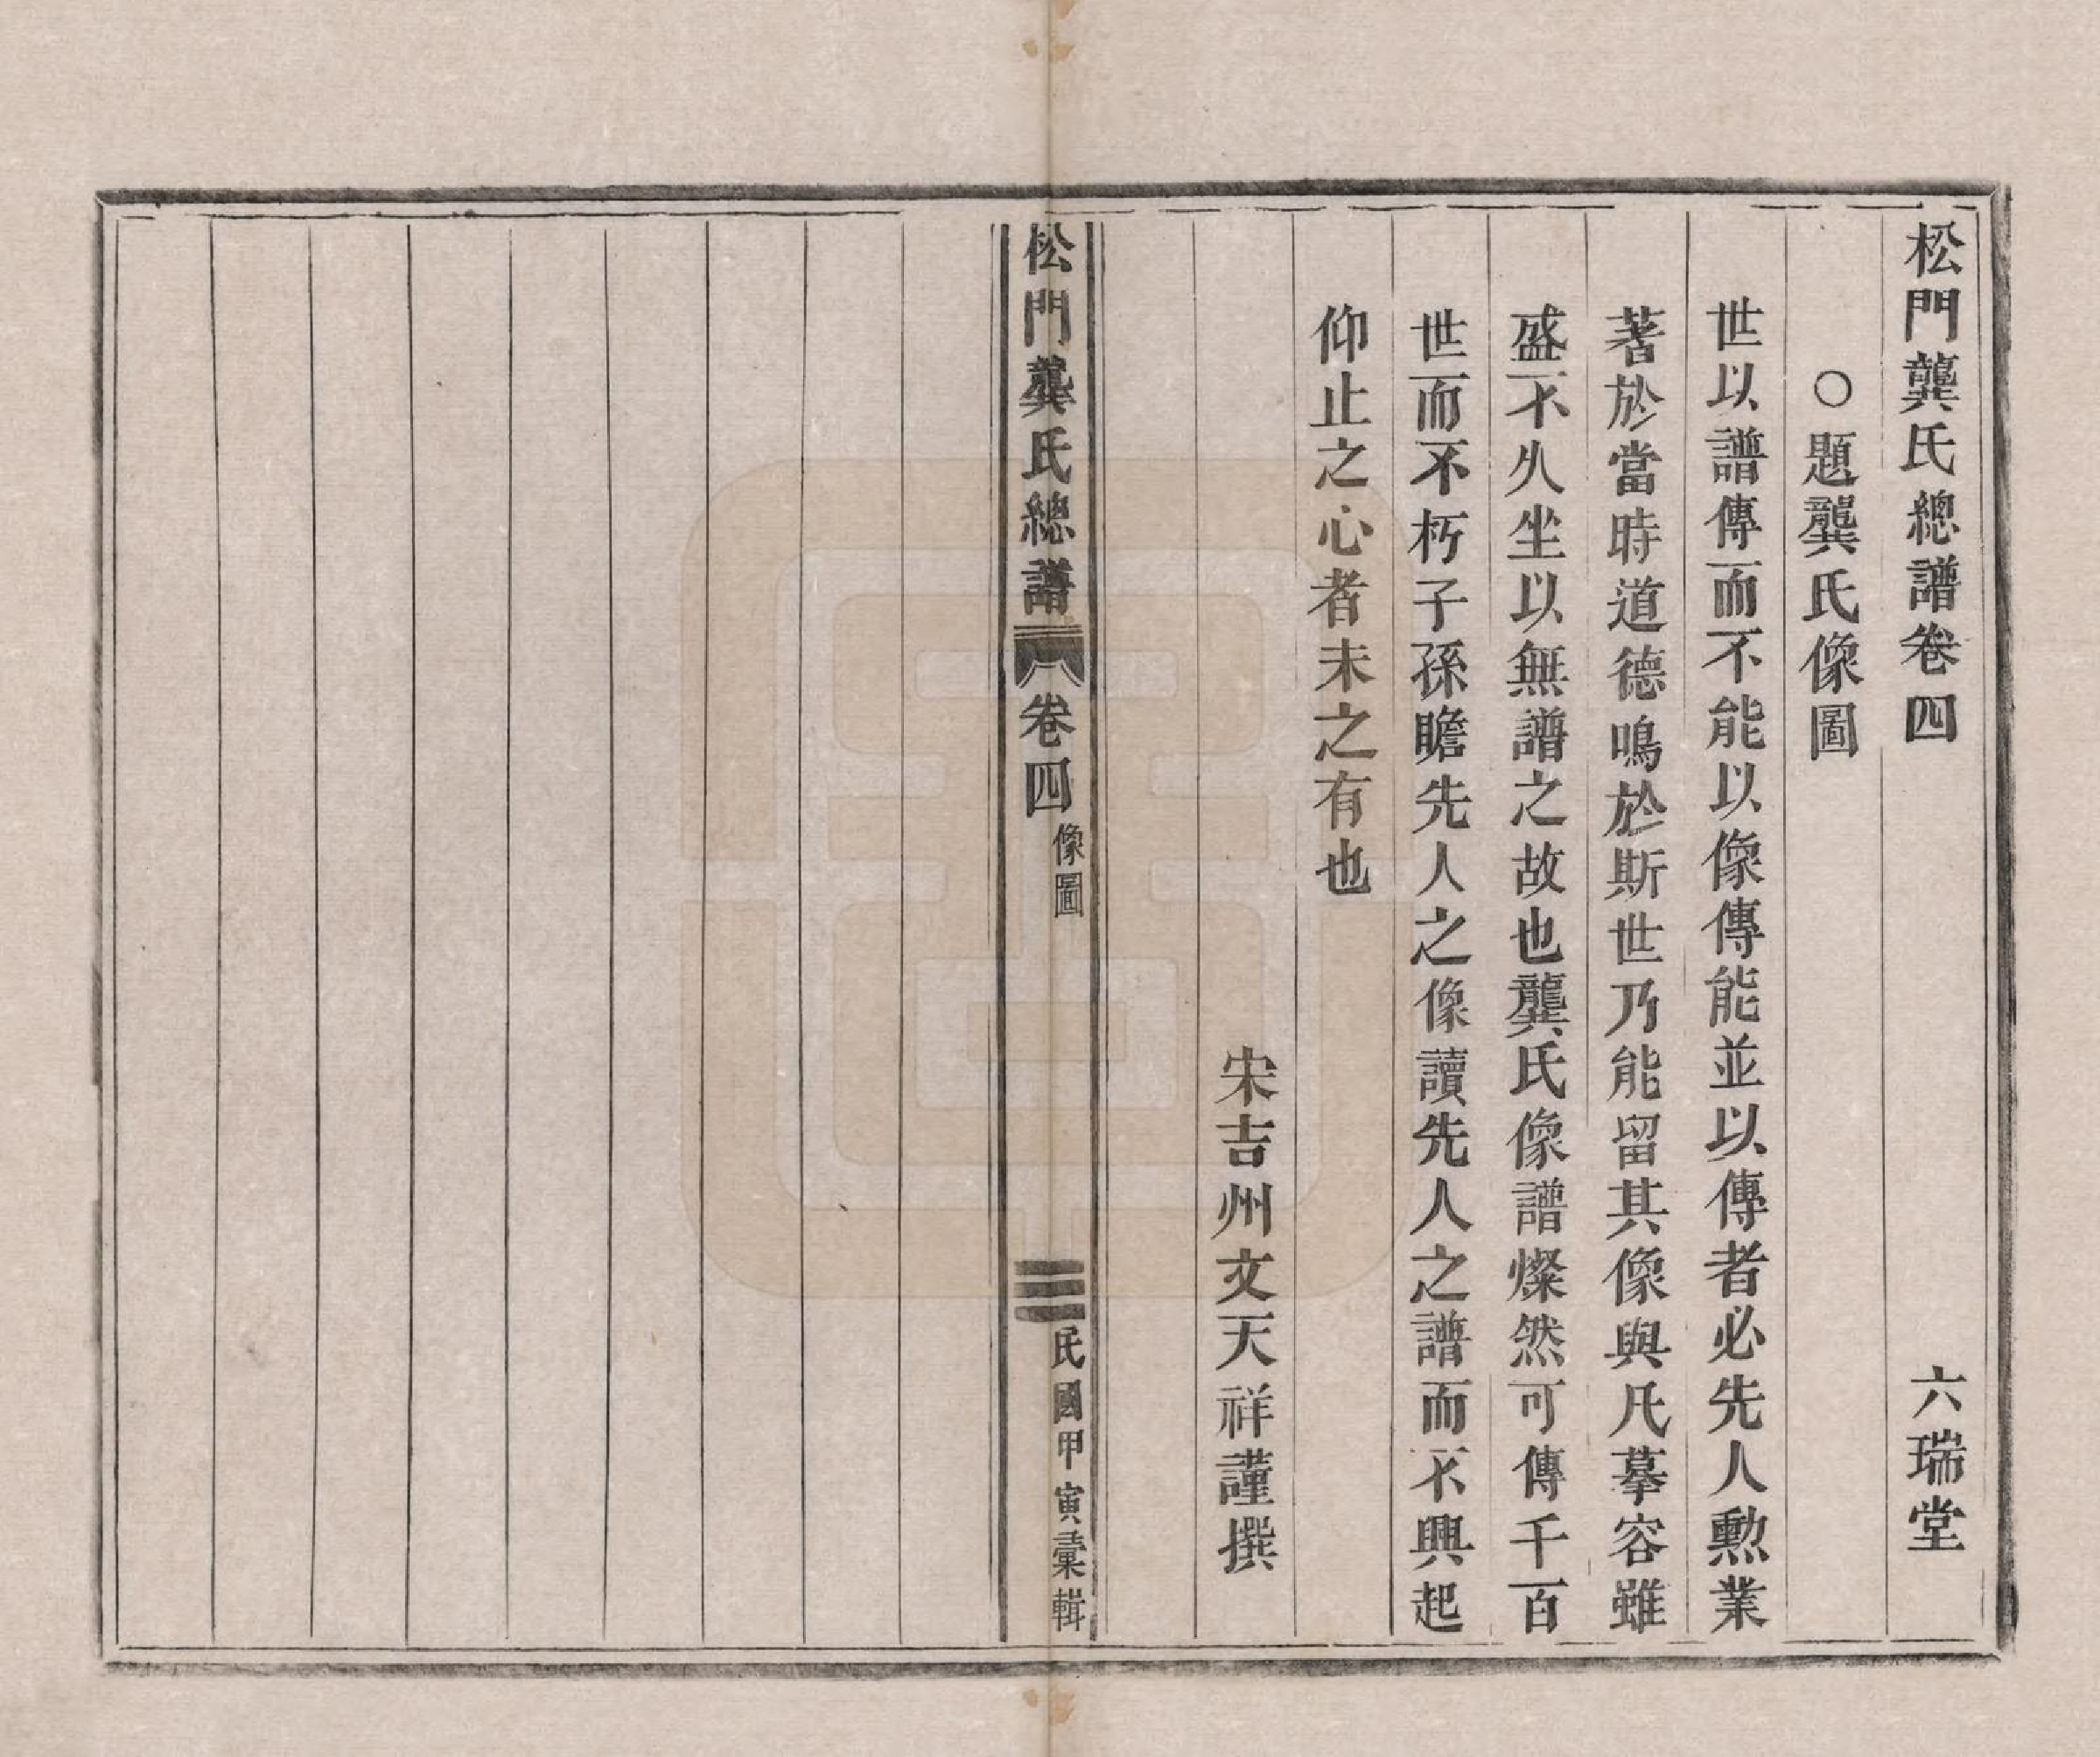 松門龔氏總譜卷四　六瑞堂
○題龔氏像圖
世以譜傳而不能以像傳能並以傳者必先人勲業
著於當時道德鳴於斯世乃能留其像與凡摹容雖
盛不久坐以無譜之故也龔氏像譜燦然可傳千百
世而不朽子孫瞻先人之像讀先人之譜而不興起
仰止之心者未之有也
宋吉州文天祥謹撰
松門龔氏總譜　卷四　像圖　三　民國甲寅彙輯